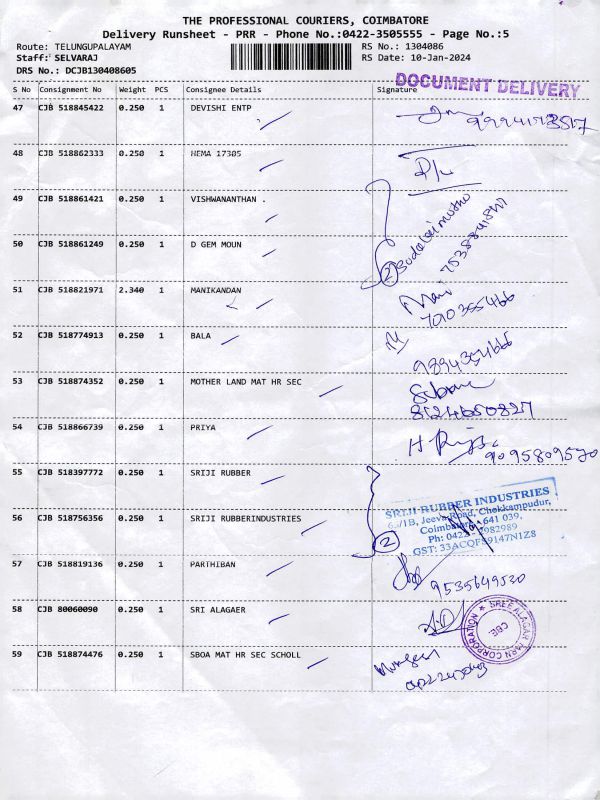 THE PROFESSIONAL COURIERS, COIMBATORE
Delivery Runsheet - PRR - Phone No.:0422-3505555 - Page No.:5
Route: TELUNGUPALAYAM RS No.: 1304086
Staff: SELVARAJ RS Date: 10-Jan-2024
DRS No.: DCJB130408605
DOCUMENT DELIVERY
S No Consignment No Weight PCS Consignee Details Signature
47 CJB 518845422 0.250 1 DEVISHI ENTP
48 CJB 518862333 0.250 1 HEMA 17305
49 CJB 518861421 0.250 1 VISHWANANTHAN .
50 CJB 518861249 0.250 1 D GEM MOUN
51 CJB 518821971 2.340 1 MANIKANDAN
52 CJB 518774913 0.250 1 BALA
9894354666
53 CJB 518874352 0.250 1 MOTHER LAND MAT HR SEC
8124650827
54 CJB 518866739 0.250 1 PRIYA
9095809570
55 CJB 518397772 0.250 1 SRIJI RUBBER
56 CJB 518756356 0.250 1 SRIJI RUBBERINDUSTRIES
2
SRIJI RUBBER INDUSTRIES
Jeeva Road, Chokkampudur,
Coimbatore - 641 039,
57 CJB 518819136 0.250 1 PARTHIBAN
9535649520
58 CJB 80060090 0.250 1 SRI ALAGAER
SREE ALAGAR YARN CORPORATION
CBE
59 CJB 518874476 0.250 1 SBOA MAT HR SEC SCHOLL